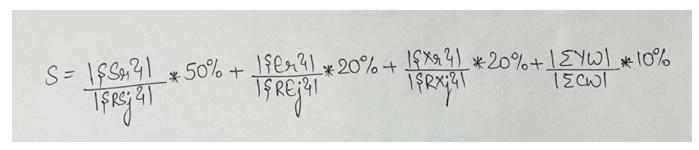 S = |{Sr}| / |{RSj}| * 50% + |{Er}| / |{REj}| * 20% + |{Xr}| / |{RXj}| * 20% + |ΣYW| / |ΣCW| * 10%